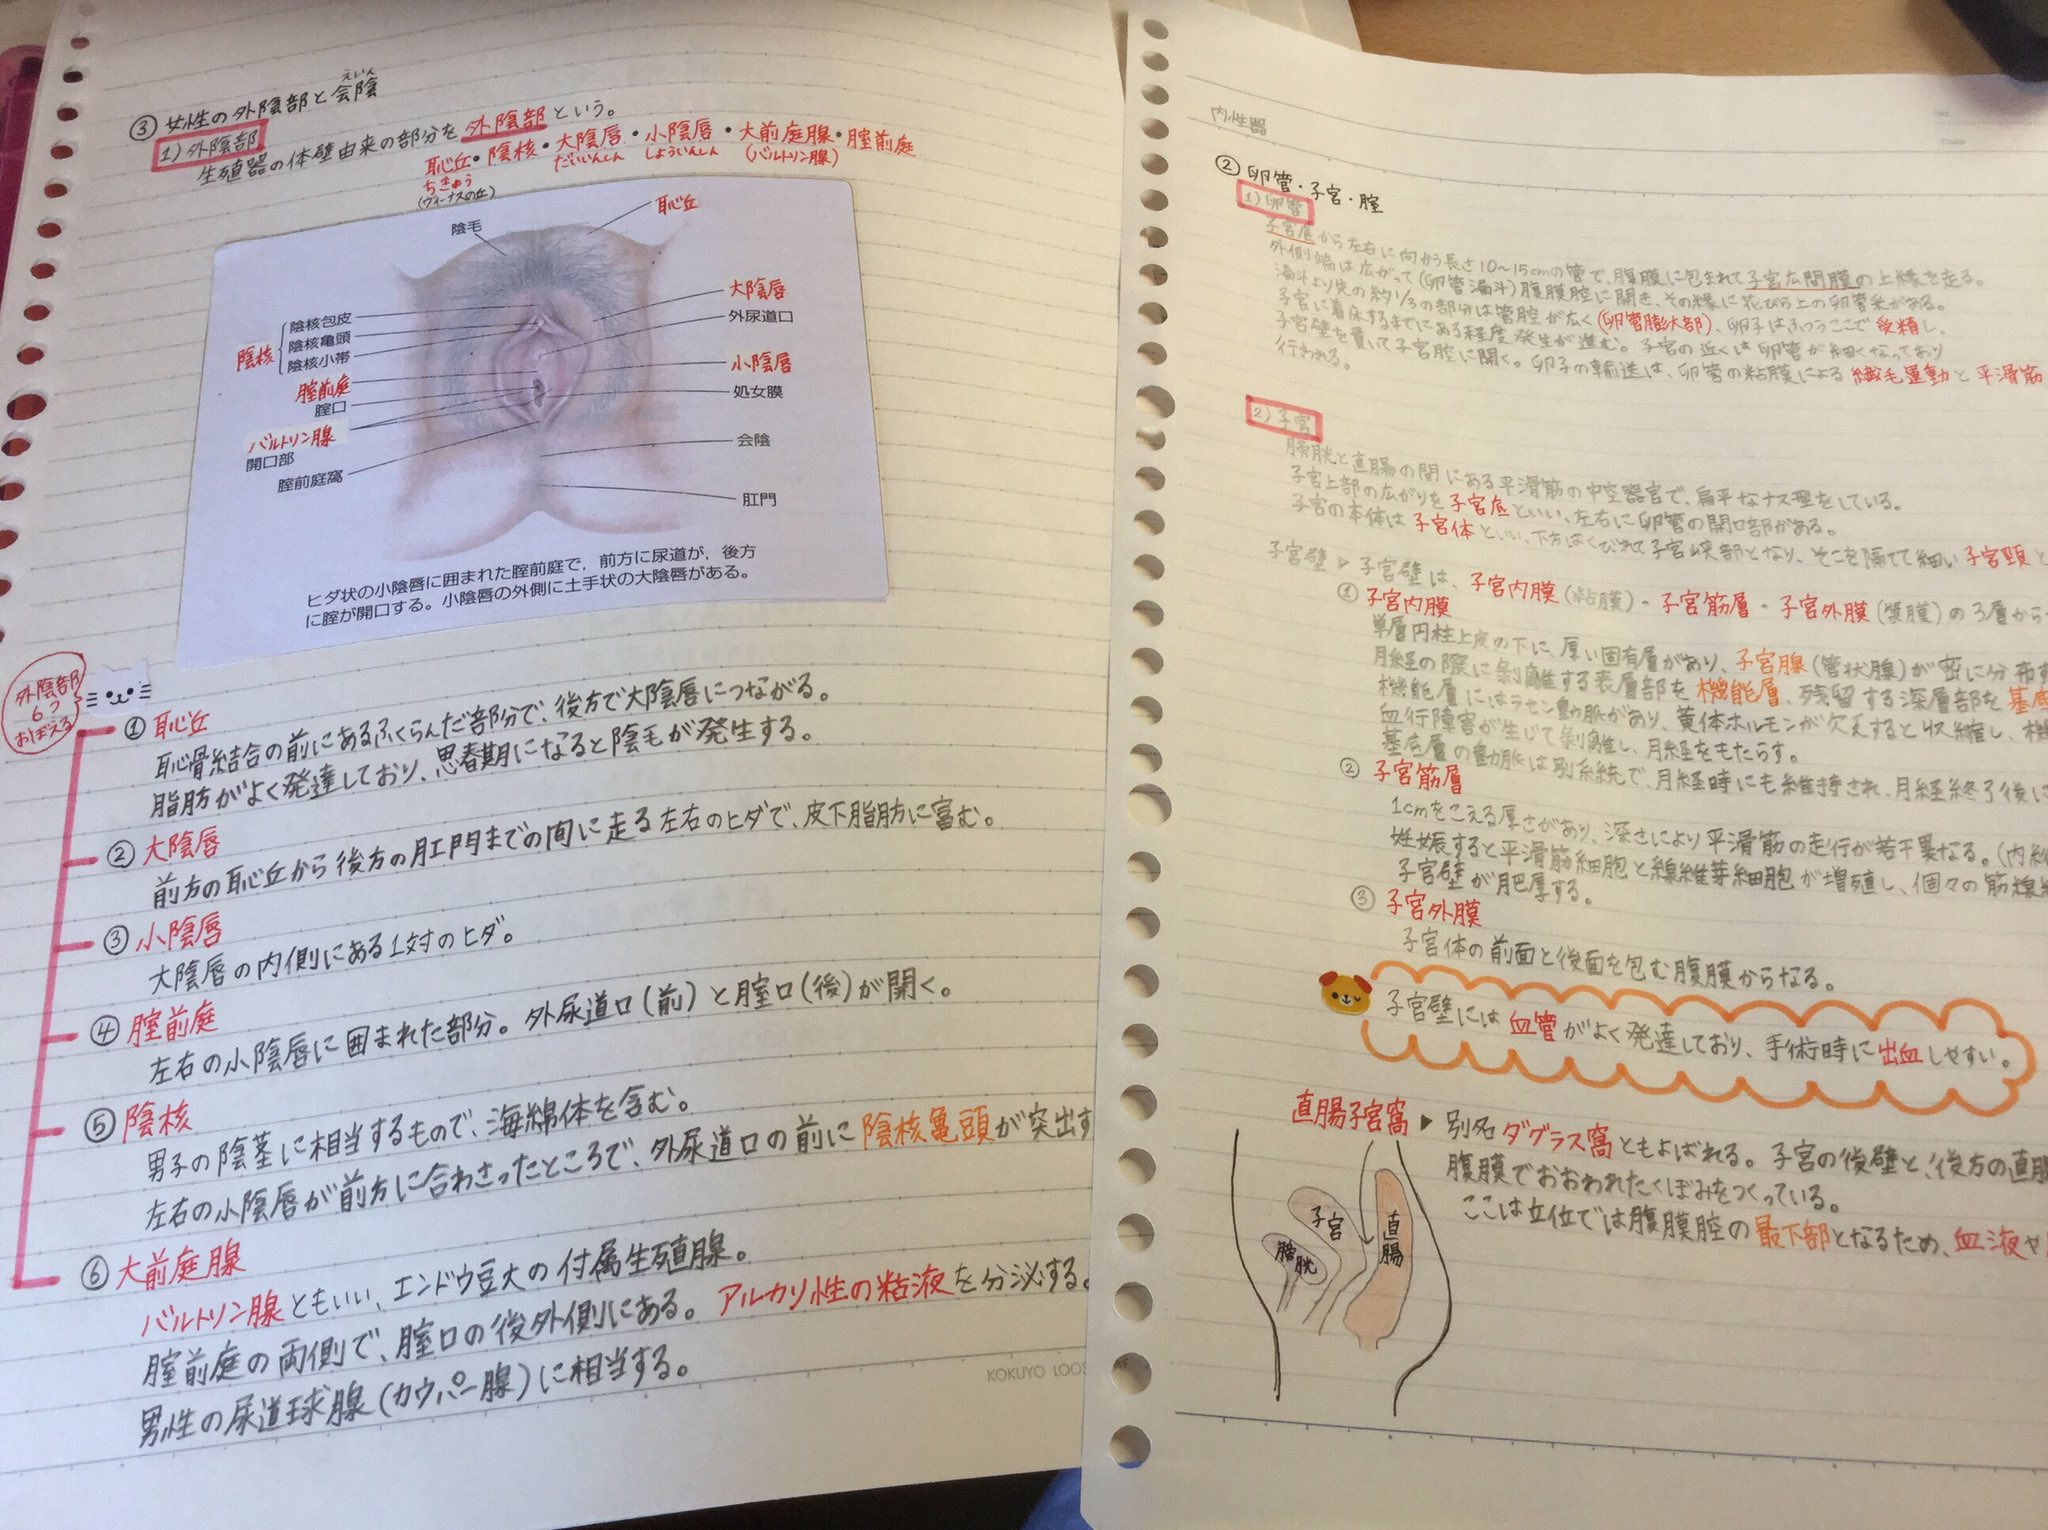 ③ 女性の外陰部と会陰
えいん
1) 外陰部
生殖器の体壁由来の部分を外陰部という。
恥丘・陰核・大陰唇・小陰唇・大前庭腺・腟前庭
ちきゅう だいいんしん しょういんしん (バルトリン腺)
(ヴィーナスの丘)
陰毛
恥丘
大陰唇
外尿道口
小陰唇
処女膜
会陰
肛門
陰核
陰核包皮
陰核亀頭
陰核小帯
腟前庭
腟口
バルトリン腺
開口部
腟前庭窩
ヒダ状の小陰唇に囲まれた腟前庭で，前方に尿道が，後方
に腟が開口する。小陰唇の外側に土手状の大陰唇がある。
外陰部
6つ
おぼえる
① 恥丘
恥骨結合の前にあるふくらんだ部分で、後方で大陰唇につながる。
脂肪がよく発達しており、思春期になると陰毛が発生する。
② 大陰唇
前方の恥丘から後方の肛門までの間に走る左右のヒダで、皮下脂肪に富む。
③ 小陰唇
大陰唇の内側にある1対のヒダ。
④ 腟前庭
左右の小陰唇に囲まれた部分。外尿道口(前)と腟口(後)が開く。
⑤ 陰核
男子の陰茎に相当するもので、海綿体を含む。
左右の小陰唇が前方に合わさったところで、外尿道口の前に陰核亀頭が突出す
⑥ 大前庭腺
バルトリン腺ともいい、エンドウ豆大の付属生殖腺。
腟前庭の両側で、腟口の後外側にある。アルカリ性の粘液を分泌する。
男性の尿道球腺(カウパー腺)に相当する。
KOKUYO LOOS
内性器
② 卵管・子宮・腟
1) 卵管
子宮底から左右に向かう長さ10〜15cmの管で、腹膜に包まれて子宮広間膜の上縁を走る。
外側端は広がって(卵管漏斗)腹膜腔に開き、その縁に花びら上の卵管采がある。
漏斗より先の約1/3の部分は管腔が広く(卵管膨大部)、卵子はふつうここで受精し、
子宮に着床するまでにある程度発生が進む。子宮の近くは卵管が細くなっており
子宮壁を貫いて子宮腔に開く。卵子の輸送は、卵管の粘膜による線毛運動と平滑筋
行われる。
2) 子宮
膀胱と直腸の間にある平滑筋の中空器官で、扁平なナス型をしている。
子宮上部の広がりを子宮底といい、左右に卵管の開口部がある。
子宮の本体は子宮体といい、下方はくびれて子宮峡部となり、そこを隔てて細い子宮頸と
子宮壁 ▷ 子宮壁は、子宮内膜(粘膜)・子宮筋層・子宮外膜(漿膜)の3層から
① 子宮内膜
単層円柱上皮の下に、厚い固有層があり、子宮腺(管状腺)が密に分布す
月経の際に剝離する表層部を機能層、残留する深層部を基底
機能層にはラセン動脈があり、黄体ホルモンが欠乏すると収縮し、機
血行障害が生じて剝離し、月経をもたらす。
基底層の動脈は別系統で、月経時にも維持され、月経終了後に
② 子宮筋層
1cmをこえる厚さがあり、深さにより平滑筋の走行が若干異なる。(内
妊娠すると平滑筋細胞と線維芽細胞が増殖し、個々の筋線
子宮壁が肥厚する。
③ 子宮外膜
子宮体の前面と後面を包む腹膜からなる。
子宮壁には血管がよく発達しており、手術時に出血しやすい。
直腸子宮窩 ▶ 別名ダグラス窩ともよばれる。子宮の後壁と、後方の直腸
腹膜でおおわれたくぼみをつくっている。
ここは立位では腹膜腔の最下部となるため、血液や
子宮
膀胱
直腸